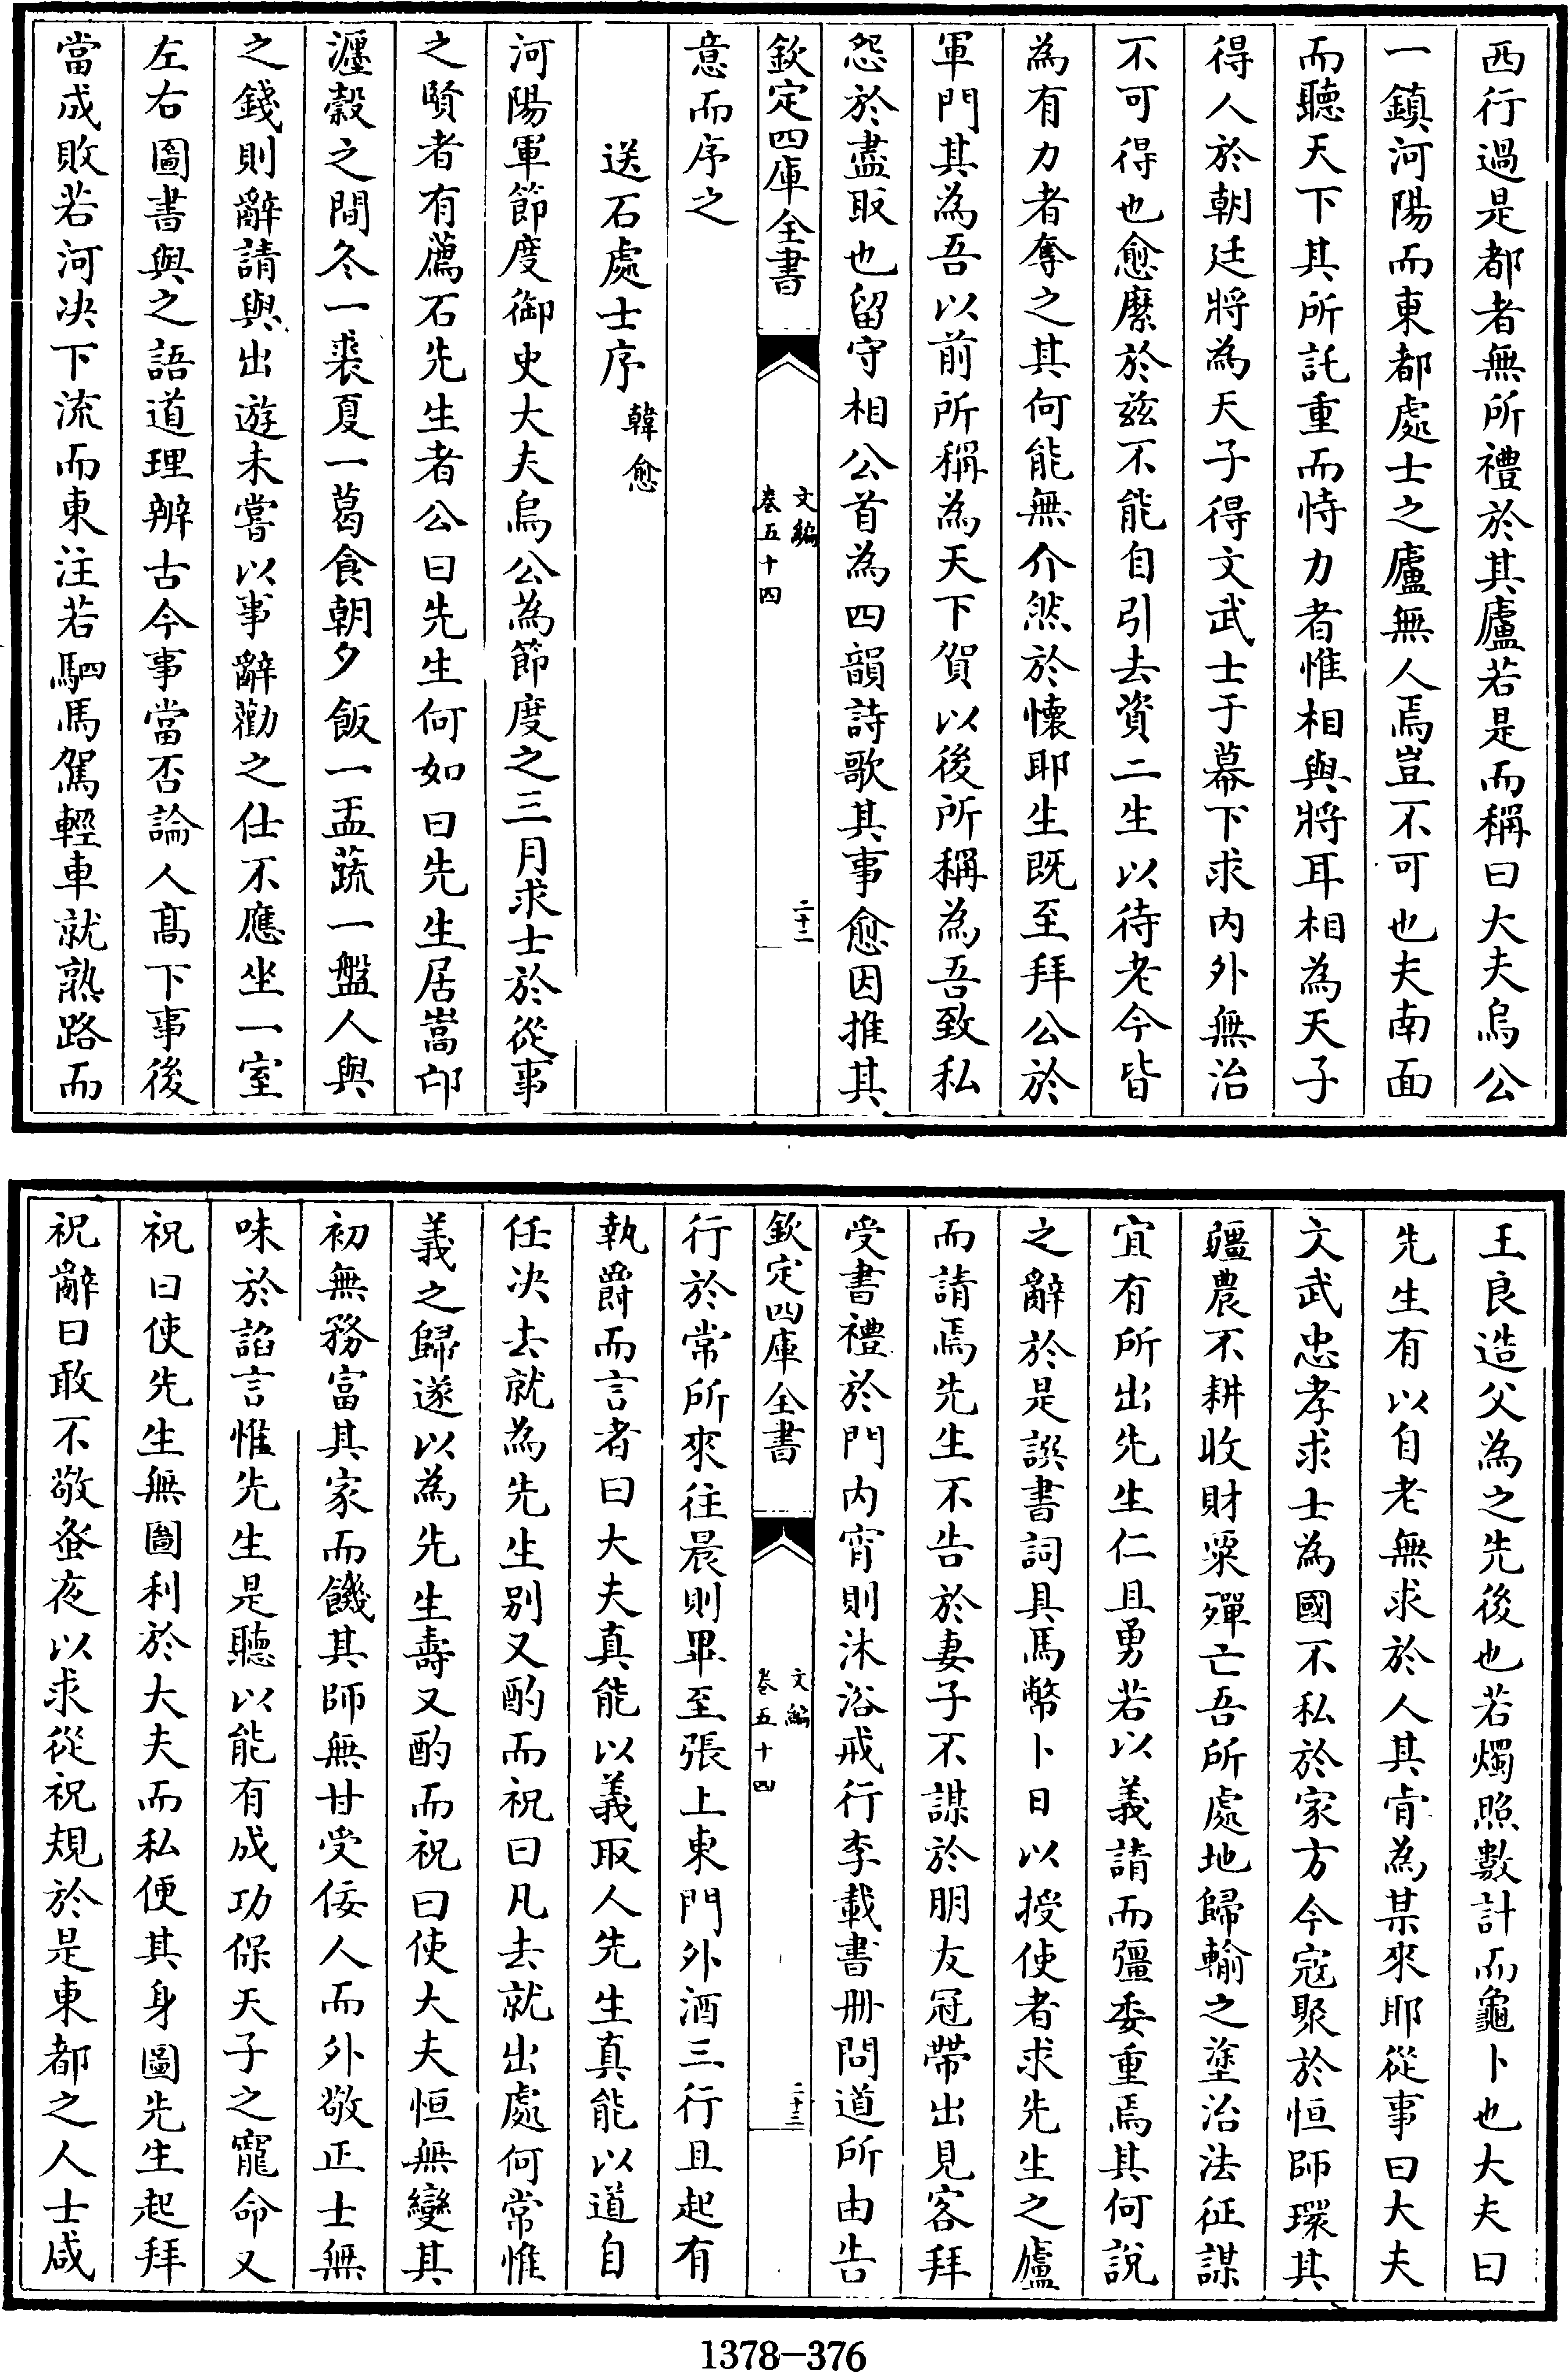 西行過是都者無所禮於其廬若是而稱曰大夫烏公
一鎮河陽而東都處士之廬無人焉豈不可也夫南面
而聽天下其所託重而恃力者惟相與將耳相為天子
得人於朝廷將為天子得文武士于幕下求内外無治
不可得也愈縻於兹不能自引去資二生以待老今皆
為有力者奪之其何能無介然於懷耶生既至拜公於
軍門其為吾以前所稱為天下賀以後所稱為吾致私
怨於盡取也留守相公首為四韻詩歌其事愈因推其
欽定四庫全書
文編
卷五十四
二十二
意而序之
送石處士序 韓愈
河陽軍節度御史大夫烏公為節度之三月求士於從事
之賢者有薦石先生者公曰先生何如曰先生居嵩邙
瀍穀之間冬一裘夏一葛食朝夕飯一盂蔬一盤人與
之錢則辭請與出遊未嘗以事辭勸之仕不應坐一室
左右圖書與之語道理辨古今事當否論人髙下事後
當成敗若河决下流而東注若駟馬駕輕車就熟路而
王良造父為之先後也若燭照數計而龜卜也大夫曰
先生有以自老無求於人其肯為某來耶從事曰大夫
文武忠孝求士為國不私於家方今寇聚於恒師環其
疆農不耕收財粟殫亡吾所處地歸輸之塗治法征謀
宜有所出先生仁且勇若以義請而彊委重焉其何說
之辭於是譔書詞具馬幣卜日以授使者求先生之廬
而請焉先生不告於妻子不謀於朋友冠帶出見客拜
受書禮於門内宵則沐浴戒行李載書冊問道所由告
欽定四庫全書
文編
卷五十四
二十三
行於常所來往晨則畢至張上東門外酒三行且起有
執爵而言者曰大夫真能以義取人先生真能以道自
任决去就為先生别又酌而祝曰凡去就出處何常惟
義之歸遂以為先生壽又酌而祝曰使大夫恒無變其
初無務富其家而饑其師無甘受佞人而外敬正士無
味於諂言惟先生是聽以能有成功保天子之寵命又
祝曰使先生無圖利於大夫而私便其身圖先生起拜
祝辭曰敢不敬蚤夜以求從祝規於是東都之人士咸
1378—376